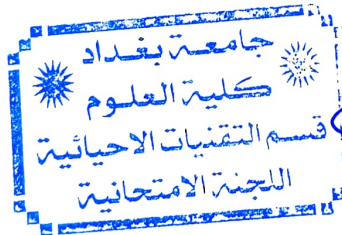 جامعة بغداد
كلية العلوم
قسم التقنيات الاحيائية
اللجنة الامتحانية